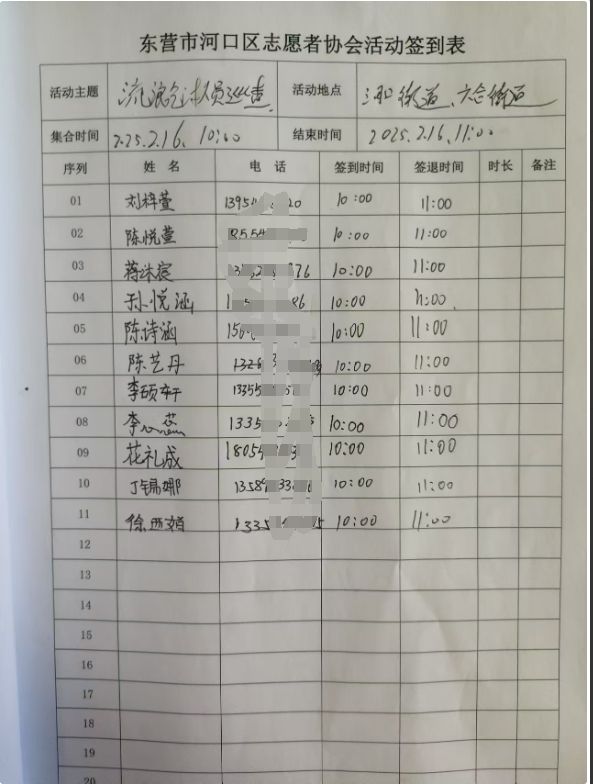 东营市河口区志愿者协会活动签到表
活动主题 流浪乞讨人员巡查 活动地点 河口街道、六合街道
集合时间 2025.2.16. 10:00 结束时间 2025.2.16. 11:00
序列 姓名 电话 签到时间 签退时间 时长 备注
01 刘梓萱 10:00 11:00
02 陈悦萱 10:00 11:00
03 10:00 11:00
04 孙悦涵 10:00 11:00
05 陈诗涵 10:00 11:00
06 陈艺丹 10:00 11:00
07 李硕轩 10:00 11:00
08 李心蕊 10:00 11:00
09 花礼成 10:00 11:00
10 丁锡娜 10:00 11:00
11 10:00 11:00
12
13
14
15
16
17
18
19
20